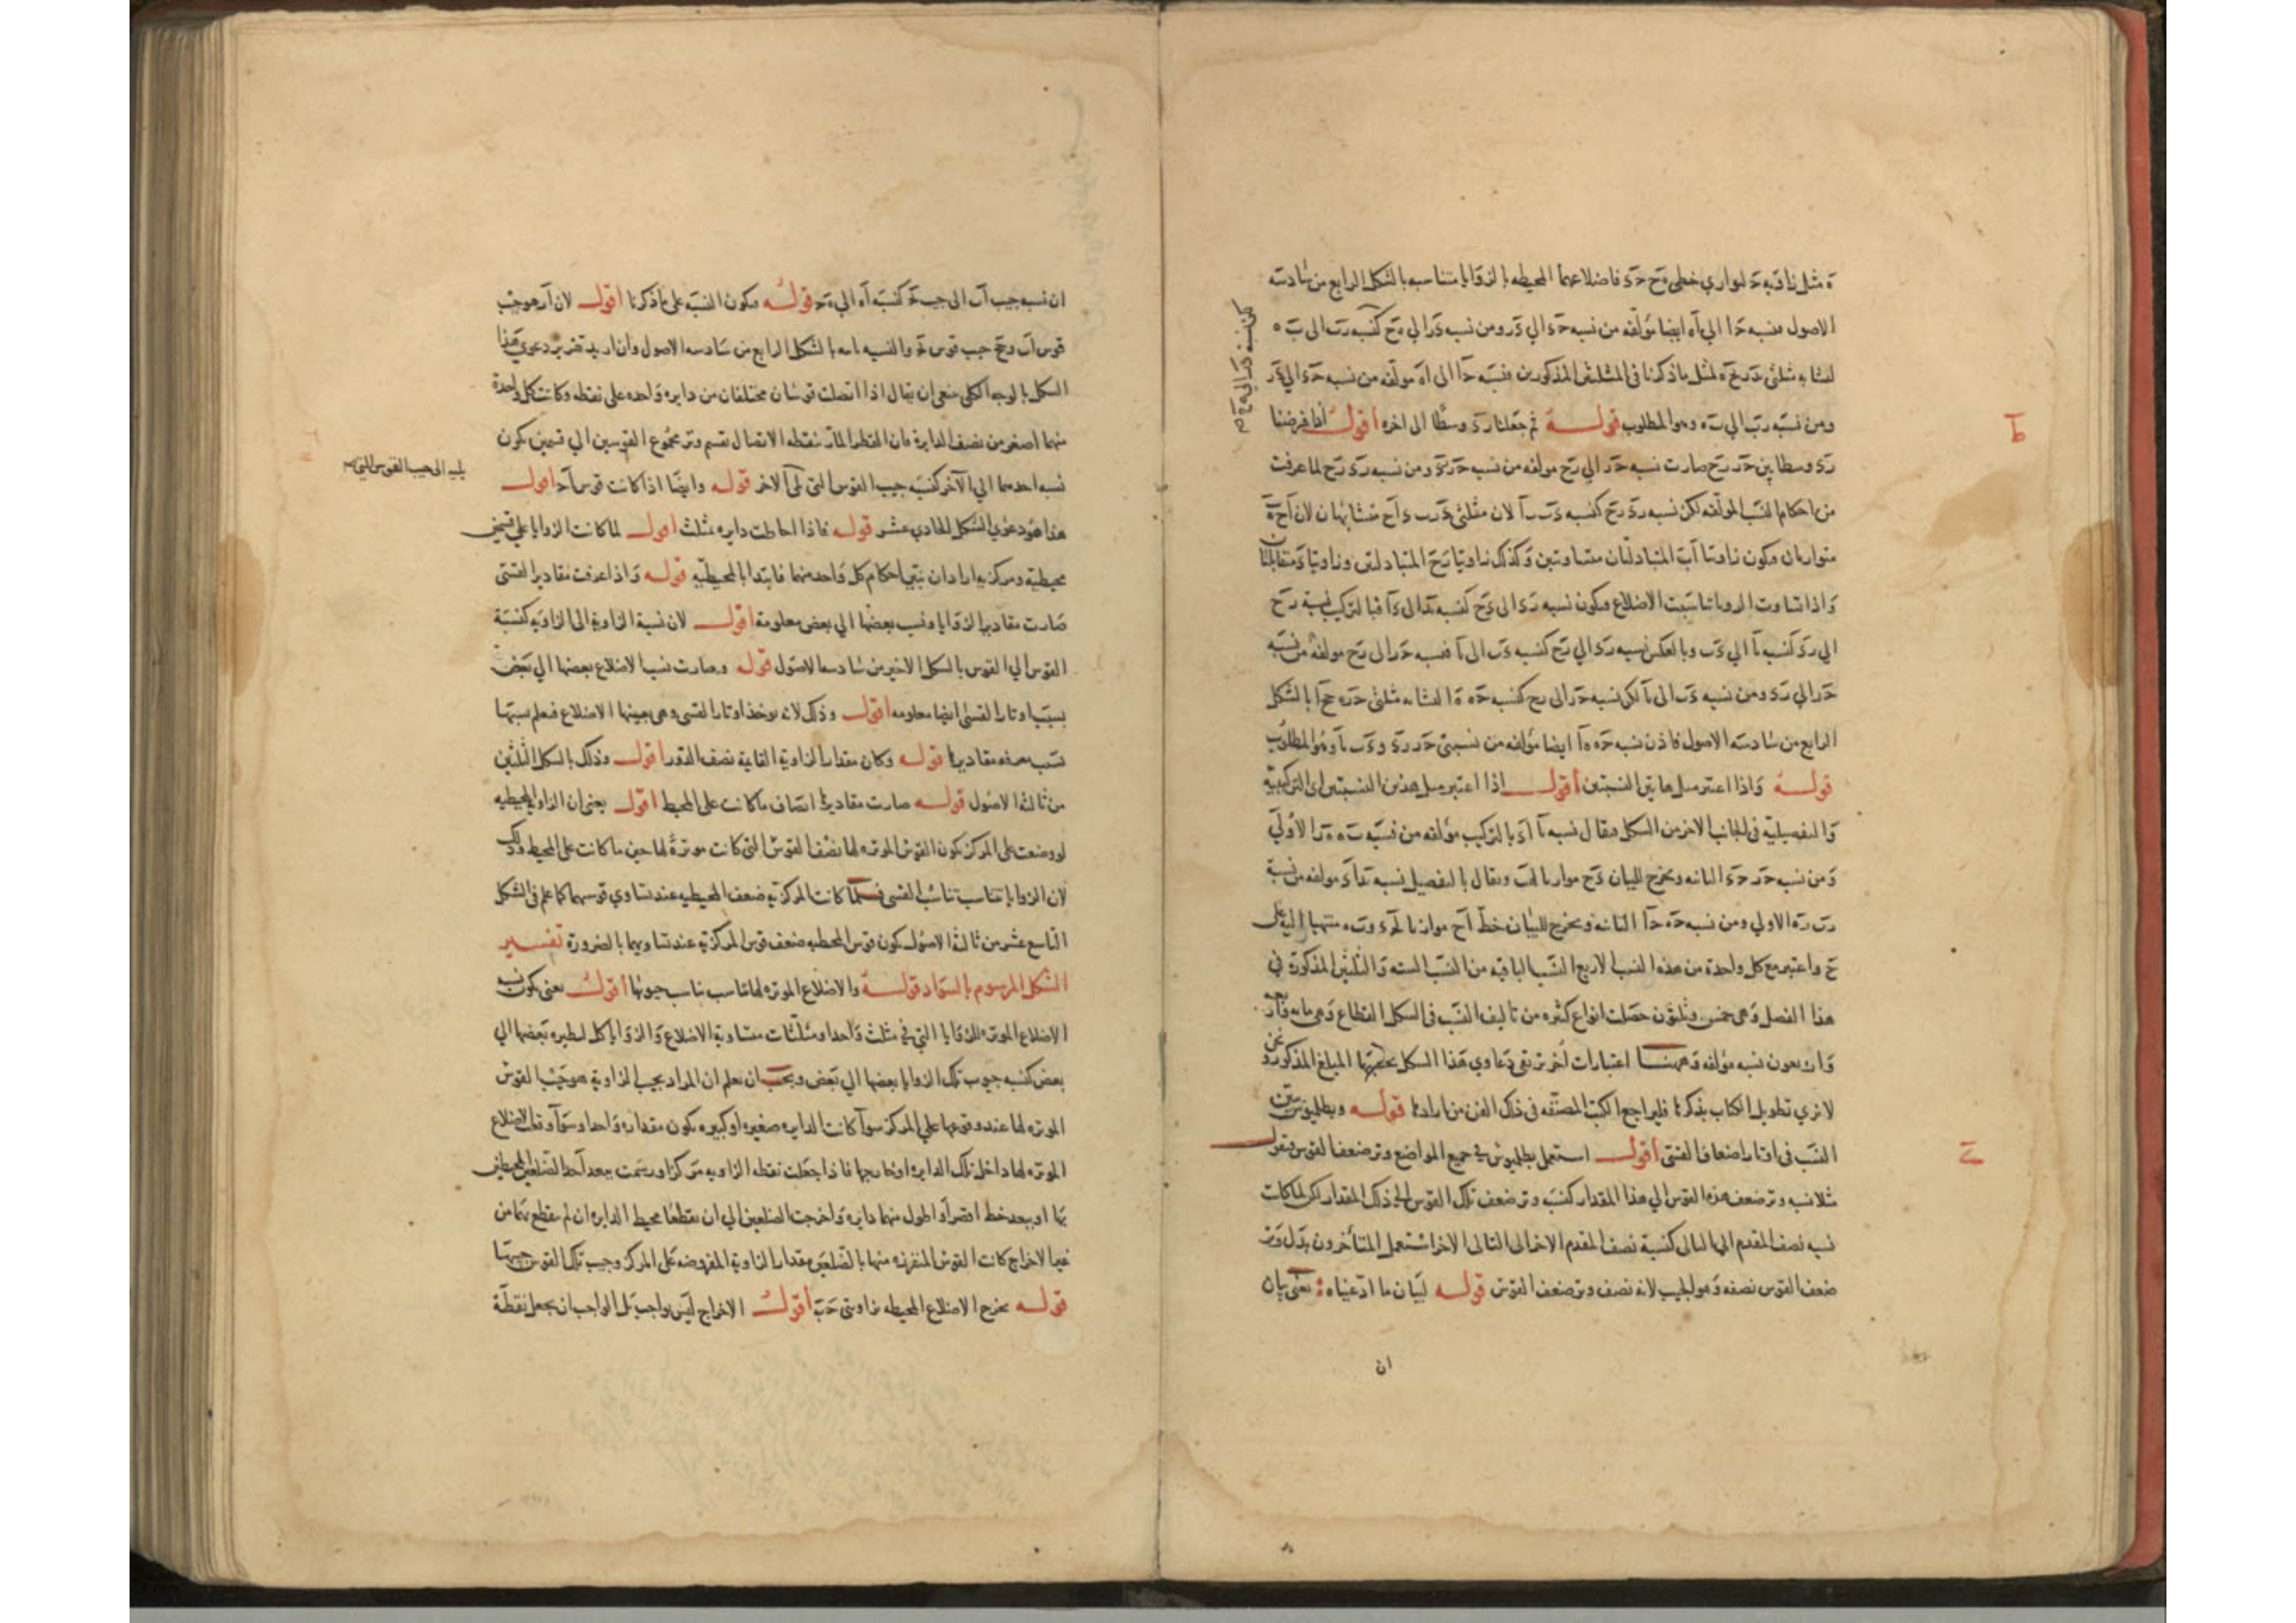 ه مثل زاويه ح لتوازي خطي هح حء فاضلاعهما المحيطه بالزوايا متناسبه بالشكل الرابع من سادسه
الاصول فنسبه حا الي اه ايضا مؤلفه من نسبه حء الي ءر ومن نسبه ءر الي هح كنسبه رب الى به
لتشابه مثلثي لمثل ما ذكرنا في المثلثين المذكورين فنسبه حا الى اه مولفه من نسبه حء الي ءر
ومن نسبه رب الي به وهو المطلوب قوله ثم جعلنا رء وسطا الى اخره اقول لنا فرضنا
رء وسطا بين حر رح صارت نسبه حر الي رح مولفه من نسبه حر رء ومن نسبه رء رح لما عرفت
من احكام النسب المولفه لكن نسبه رء رح كنسبه ءب با لان مثلثي ءرب ءاح متشابهان لان
متوازيان فيكون زاويتا اب المتبادلتان متساويتين وكذلك زاويتا رح المتبادلتين وزاويتا ء متقابلتان
واذا تساوت الزوايا تناسبت الاضلاع فيكون نسبه رء الى ءح كنسبه بء الى ءا فبالتركيب نسبه رح
الي رء كنسبه با الي ءب وبالعكس نسبه رء الي رح كنسبه ءب الى با فنسبه حر الى رح مولفه من نسبه
حر الي رء ومن نسبه ءب الى با لكن نسبه حر الى رح كنسبه حه ها لتشابه مثلثي حره حا بالشكل
الرابع من سادسه الاصول فاذن نسبه حه ها ايضا مؤلفه من نسبتي حر رء وءب با وهو المطلوب
قوله واذا اعتبر مثل هاتين النسبتين اقول اذا اعتبر مثل هذين النسبتين اي التركيبيه
والتفصيليه في الجانب الاخر من الشكل فيقال نسبه با اء بالتركيب مؤلفه من نسبه به هر الاولي
ومن نسبه حر حء الثانيه ويخرج للبيان ءح موازيا لهب ويقال بالتفصيل نسبه بء اء مولفه من نسبه
رب ره الاولي ومن نسبه حه حا الثانيه ويخرج للبيان خط اح موازيا لحء وبه منتهيا اليه على
ح واعتبر مع كل واحدة من هذه النسب الاربع النسب الباقيه من النسب السته والثلثين المذكورة في
هذا الفصل وهي خمس وثلثون حصلت انواع كثيره من تاليف النسب في الشكل القطاع وهي مايه
واربعون نسبه مؤلفه وههنا اعتبارات اخر ترتقي دعاوي هذا الشكل بحسبها المبلغ المذكور ونحن
لا نري تطويل الكتاب بذكرها فليراجع الكتب المصنفه في ذلك الفن من ارادها قوله وبطليوس بين
النسب في اوتار اضعاف القسي اقول استعمل بطليوس في جميع المواضع وتر ضعف القوس فيقول
مثلا نسبه وتر ضعف هذه القوس الي هذا المقدار كنسبه وتر ضعف تلك القوس الي ذلك المقدار لكن لما كانت
نسبه نصف المقدم الي التالى كنسبة نصف المقدم الاخر الى التالى الاخر استعمل المتأخرون بدل وتر
ضعف القوس نصفه وهو الجيب لانه نصف وتر ضعف القوس قوله لبيان ما ادعيناه يعني بيان
ان
ان نسبه جيب اب الى جيب كنسبه اه الي هح قوله فيكون النسبه على ما ذكرنا اقول لان ار هو جيب
قوس اب وحح جيب قوس والنسبه ثابته بالشكل الرابع من سادسه الاصول وان اريد تقرير دعوي هذا
الشكل بالوجه الكلي ينبغي ان يقال اذا اتصلت قوسان مختلفتان من دايره واحده على نقطه وكانت كل واحدة
منهما اصغر من نصف الدايرة فان القطر المار بنقطه الاتصال يقسم وتر مجموع القوسين الي قسمين يكون
نسبه احدهما الي الآخر كنسبه جيب القوس التي تلي الآخر قوله وايضا اذا كانت قوس اح اقول
يليه الى جيب القوس التي
هذا هو دعوي الشكل الحادي عشر قوله فاذا احاطت دايره بمثلث اقول لما كانت الزوايا على قسمين
محيطيه ومركزيه اراد ان يبين احكام كل واحد منهما فابتدا بالمحيطيه قوله واذا عرفت مقادير القسي
صارت مقادير الزوايا ونسب بعضها الي بعض معلومة اقول لان نسبة الزاوية الى الزاويه كنسبة
القوس الي القوس بالشكل الاخير من سادسه الاصول قوله وصارت نسب الاضلاع بعضها الي بعض
بسبب اوتار القسي ايضا معلومه اقول وذلك لانه يوخذ اوتار القسي وهي بعينها الاضلاع فيعلم نسبتها
بسبب معرفه مقاديرها قوله وكان مقدار الزاوية القايمة نصف الدور اقول وذلك بالشكل الثلثين
من ثالثه الاصول قوله صارت مقاديرها انصاف ما كانت على المحيط اقول يعني ان الزاويه المحيطيه
لو وضعت على المركز يكون القوس الموتره لها نصف القوس التي كانت موترة لها حين ما كانت على المحيط وذلك
لان الزوايا تناسب تناسب القسي فلما كانت المركزيه ضعف المحيطيه عند تساوي قوسيهما كما علم في الشكل
التاسع عشر من ثالثه الاصول يكون قوس المحيطيه ضعف قوس المركزيه عند تساويهما بالضرورة تفسير
الشكل المرسوم بالسواد قوله والاضلاع الموتره لها تناسب تناسب جيوبها اقول يعني يكون نسبه
الاضلاع الموتره للزوايا التي في مثلث واحد او مثلثات متساوية الاضلاع والزوايا كل لنظيره بعضها الي
بعض كنسبه جيوب تلك الزوايا بعضها الي بعض ويجب ان يعلم ان المراد بجيب الزاوية هو جيب القوس
الموتره لها عند وقوعها علي المركز سوآ كانت الدايره صغيره او كبيره يكون مقداره واحدا وسوآ وقعت الاضلاع
الموتره لها داخل تلك الدايره او خارجها فاذا جعلت نقطه الزاويه مركزا ورسمت ببعد احد الضلعين المحيطين
بها او ببعد خط اقصر او اطول منهما دايره واخرجت الضلعين الي ان يقطعا محيط الدايره ان لم يقطع بهما من
غير الاخراج كانت القوس المنفرزه منها بالضلعين مقدار الزاوية المفروضه على المركز وجيب تلك القوس جيبها
قوله يخرج الاضلاع المحيطه بزاويتي حب اقول الاخراج ليس بواجب بل الواجب ان يجعل نقطة